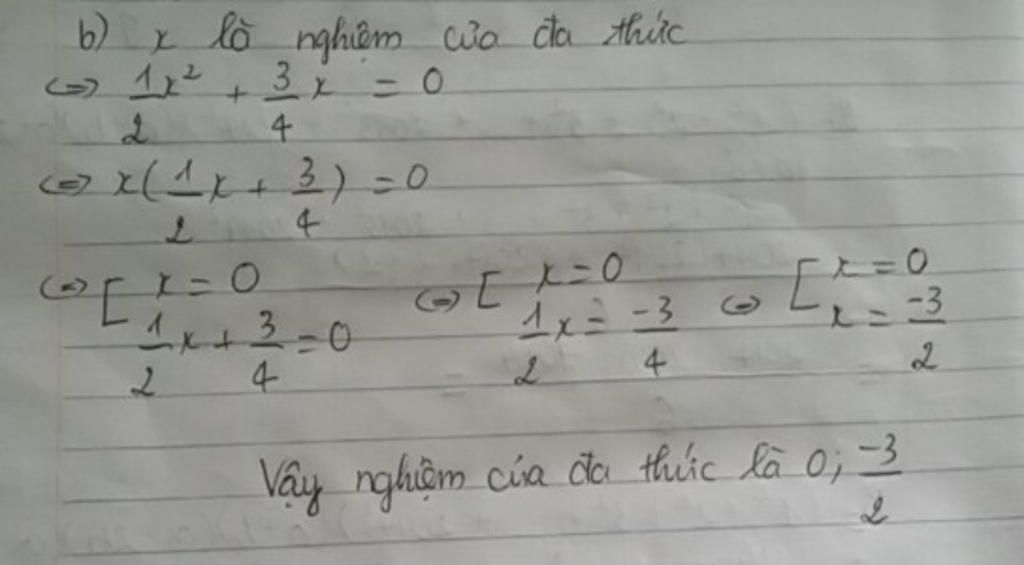 b) x là nghiệm của đa thức
<=> 1/2 x² + 3/4 x = 0
<=> x(1/2 x + 3/4) = 0
<=> [ x = 0 <=> [ x = 0 <=> [ x = 0
1/2 x + 3/4 = 0 1/2 x = -3/4 x = -3/2
Vậy nghiệm của đa thức là 0; -3/2